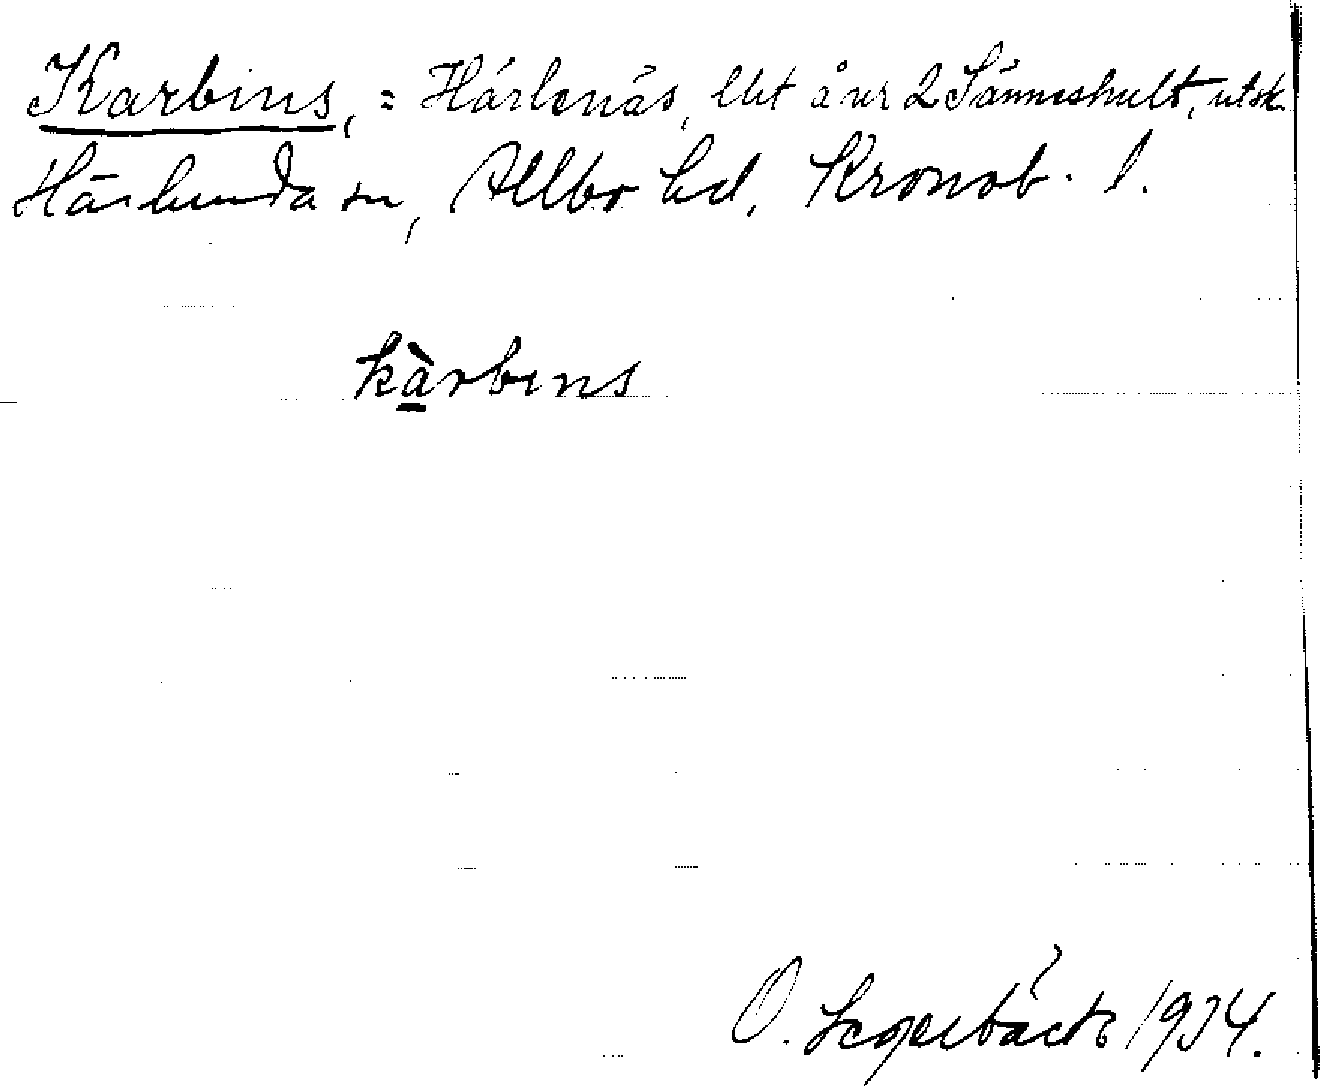 Karbins, = Härlenäs, lht å nr 2 Sänneshult, utsk.
Härlunda sn, Allbo hd, Kronob. l.
kàrbins
O. 1934.